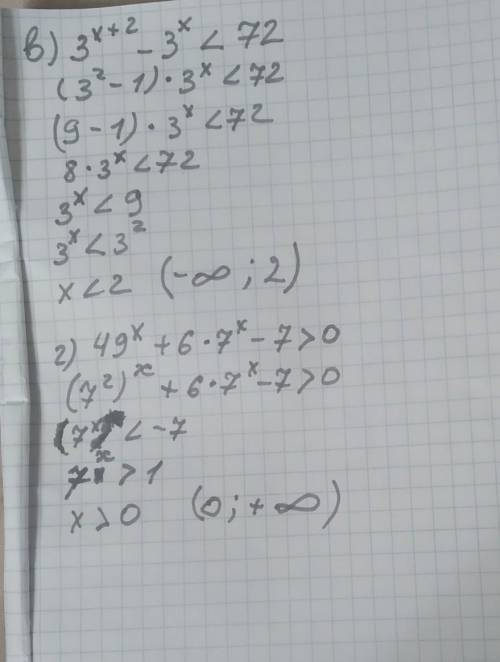 в) 3^{x+2} - 3^x < 72
(3^2 - 1) · 3^x < 72
(9 - 1) · 3^x < 72
8 · 3^x < 72
3^x < 9
3^x < 3^2
x < 2 (-∞ ; 2)
г) 49^x + 6 · 7^x - 7 > 0
(7^2)^x + 6 · 7^x - 7 > 0
7^x < -7
7^x > 1
x > 0 (0; +∞)